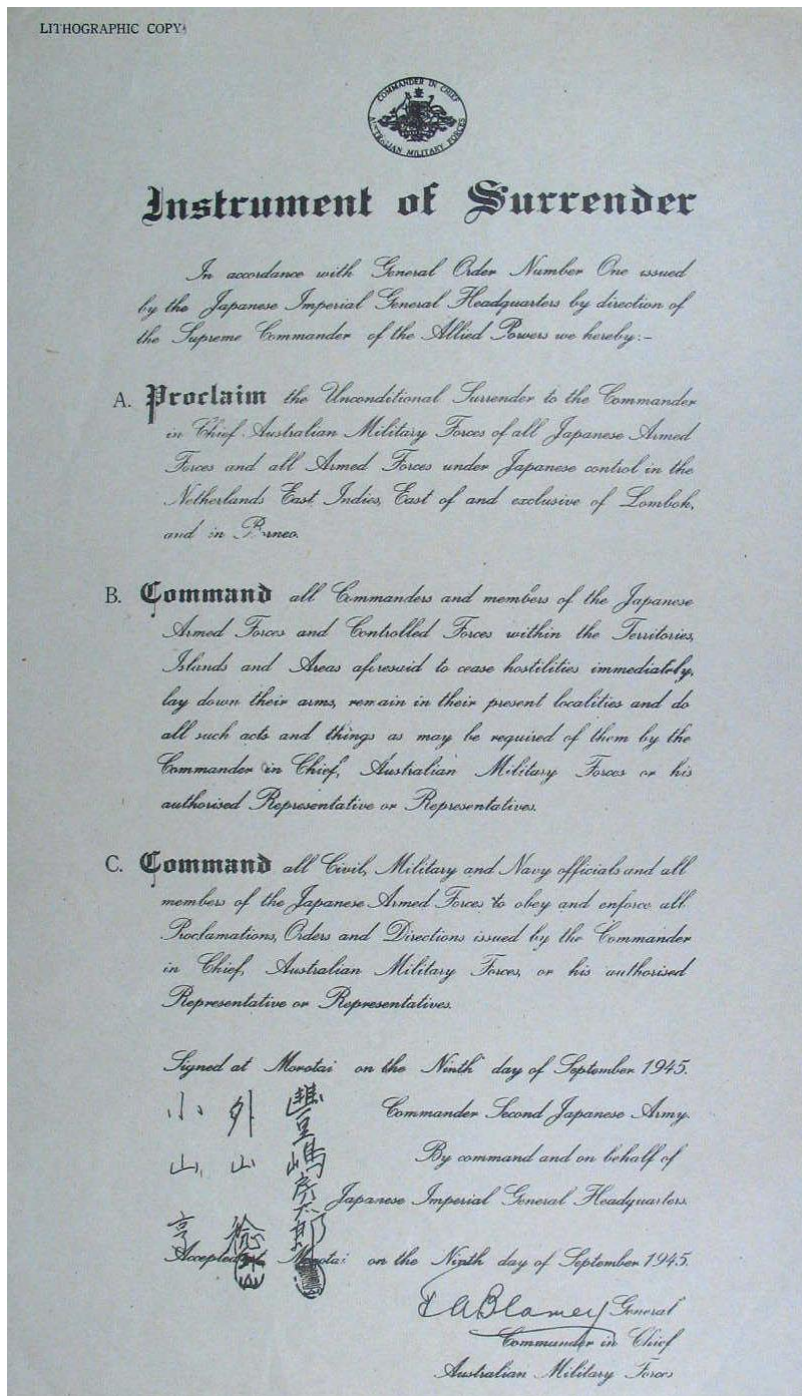 LITHOGRAPHIC COPY
COMMANDER IN CHIEF
AUSTRALIAN MILITARY FORCES
Instrument of Surrender
In accordance with General Order Number One issued
by the Japanese Imperial General Headquarters by direction of
the Supreme Commander of the Allied Powers we hereby:-
A. Proclaim the Unconditional Surrender to the Commander
in Chief Australian Military Forces of all Japanese Armed
Forces and all Armed Forces under Japanese control in the
Netherlands East Indies, East of and exclusive of Lombok,
and in Borneo.
B. Command all Commanders and members of the Japanese
Armed Forces and Controlled Forces within the Territories,
Islands and Areas aforesaid to cease hostilities immediately,
lay down their arms, remain in their present localities and do
all such acts and things as may be required of them by the
Commander in Chief, Australian Military Forces or his
authorised Representative or Representatives.
C. Command all Civil, Military and Navy officials and all
members of the Japanese Armed Forces to obey and enforce all
Proclamations, Orders and Directions issued by the Commander
in Chief, Australian Military Forces, or his authorised
Representative or Representatives.
Signed at Morotai on the Ninth day of September 1945.
豊嶋房太郎
外山
小山亨
Commander Second Japanese Army.
By command and on behalf of
Japanese Imperial General Headquarters.
Accepted at Morotai on the Ninth day of September 1945.
T A Blamey General
Commander in Chief
Australian Military Forces